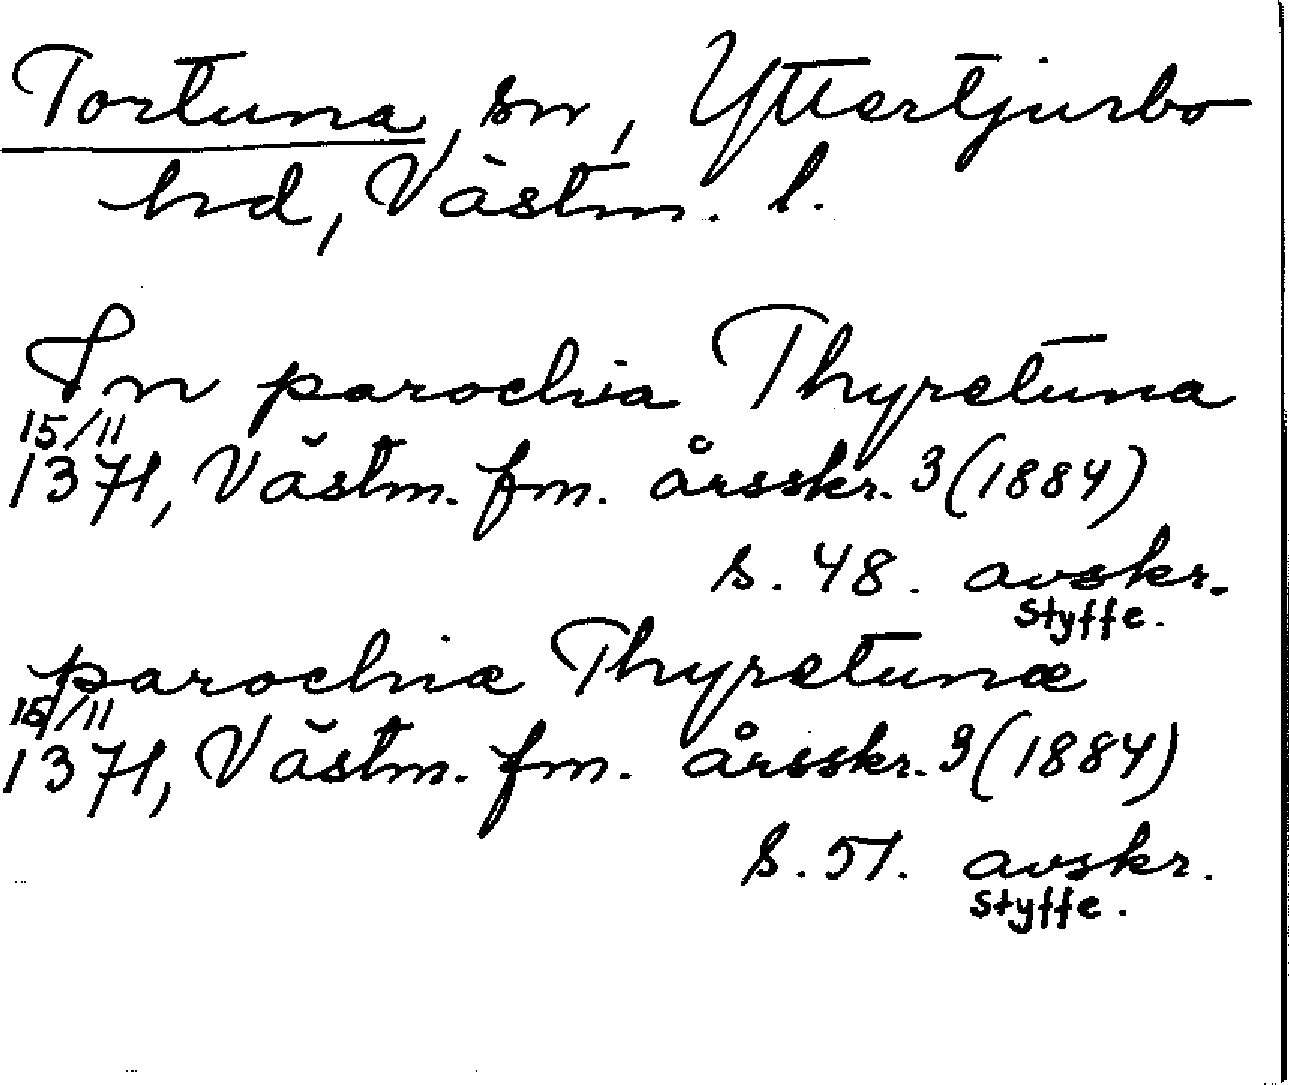 Tortuna, sn, Yttertjurbo
hd, Västm. l.
In parochia Thyretuna
15/11
1371, Västm. fm. årsskr. 3 (1884)
s. 48. avskr.
Styffe.
parochiæ Thyretunæ
15/11
1371, Västm. fm. årsskr. 3 (1884)
s. 51. avskr.
Styffe.